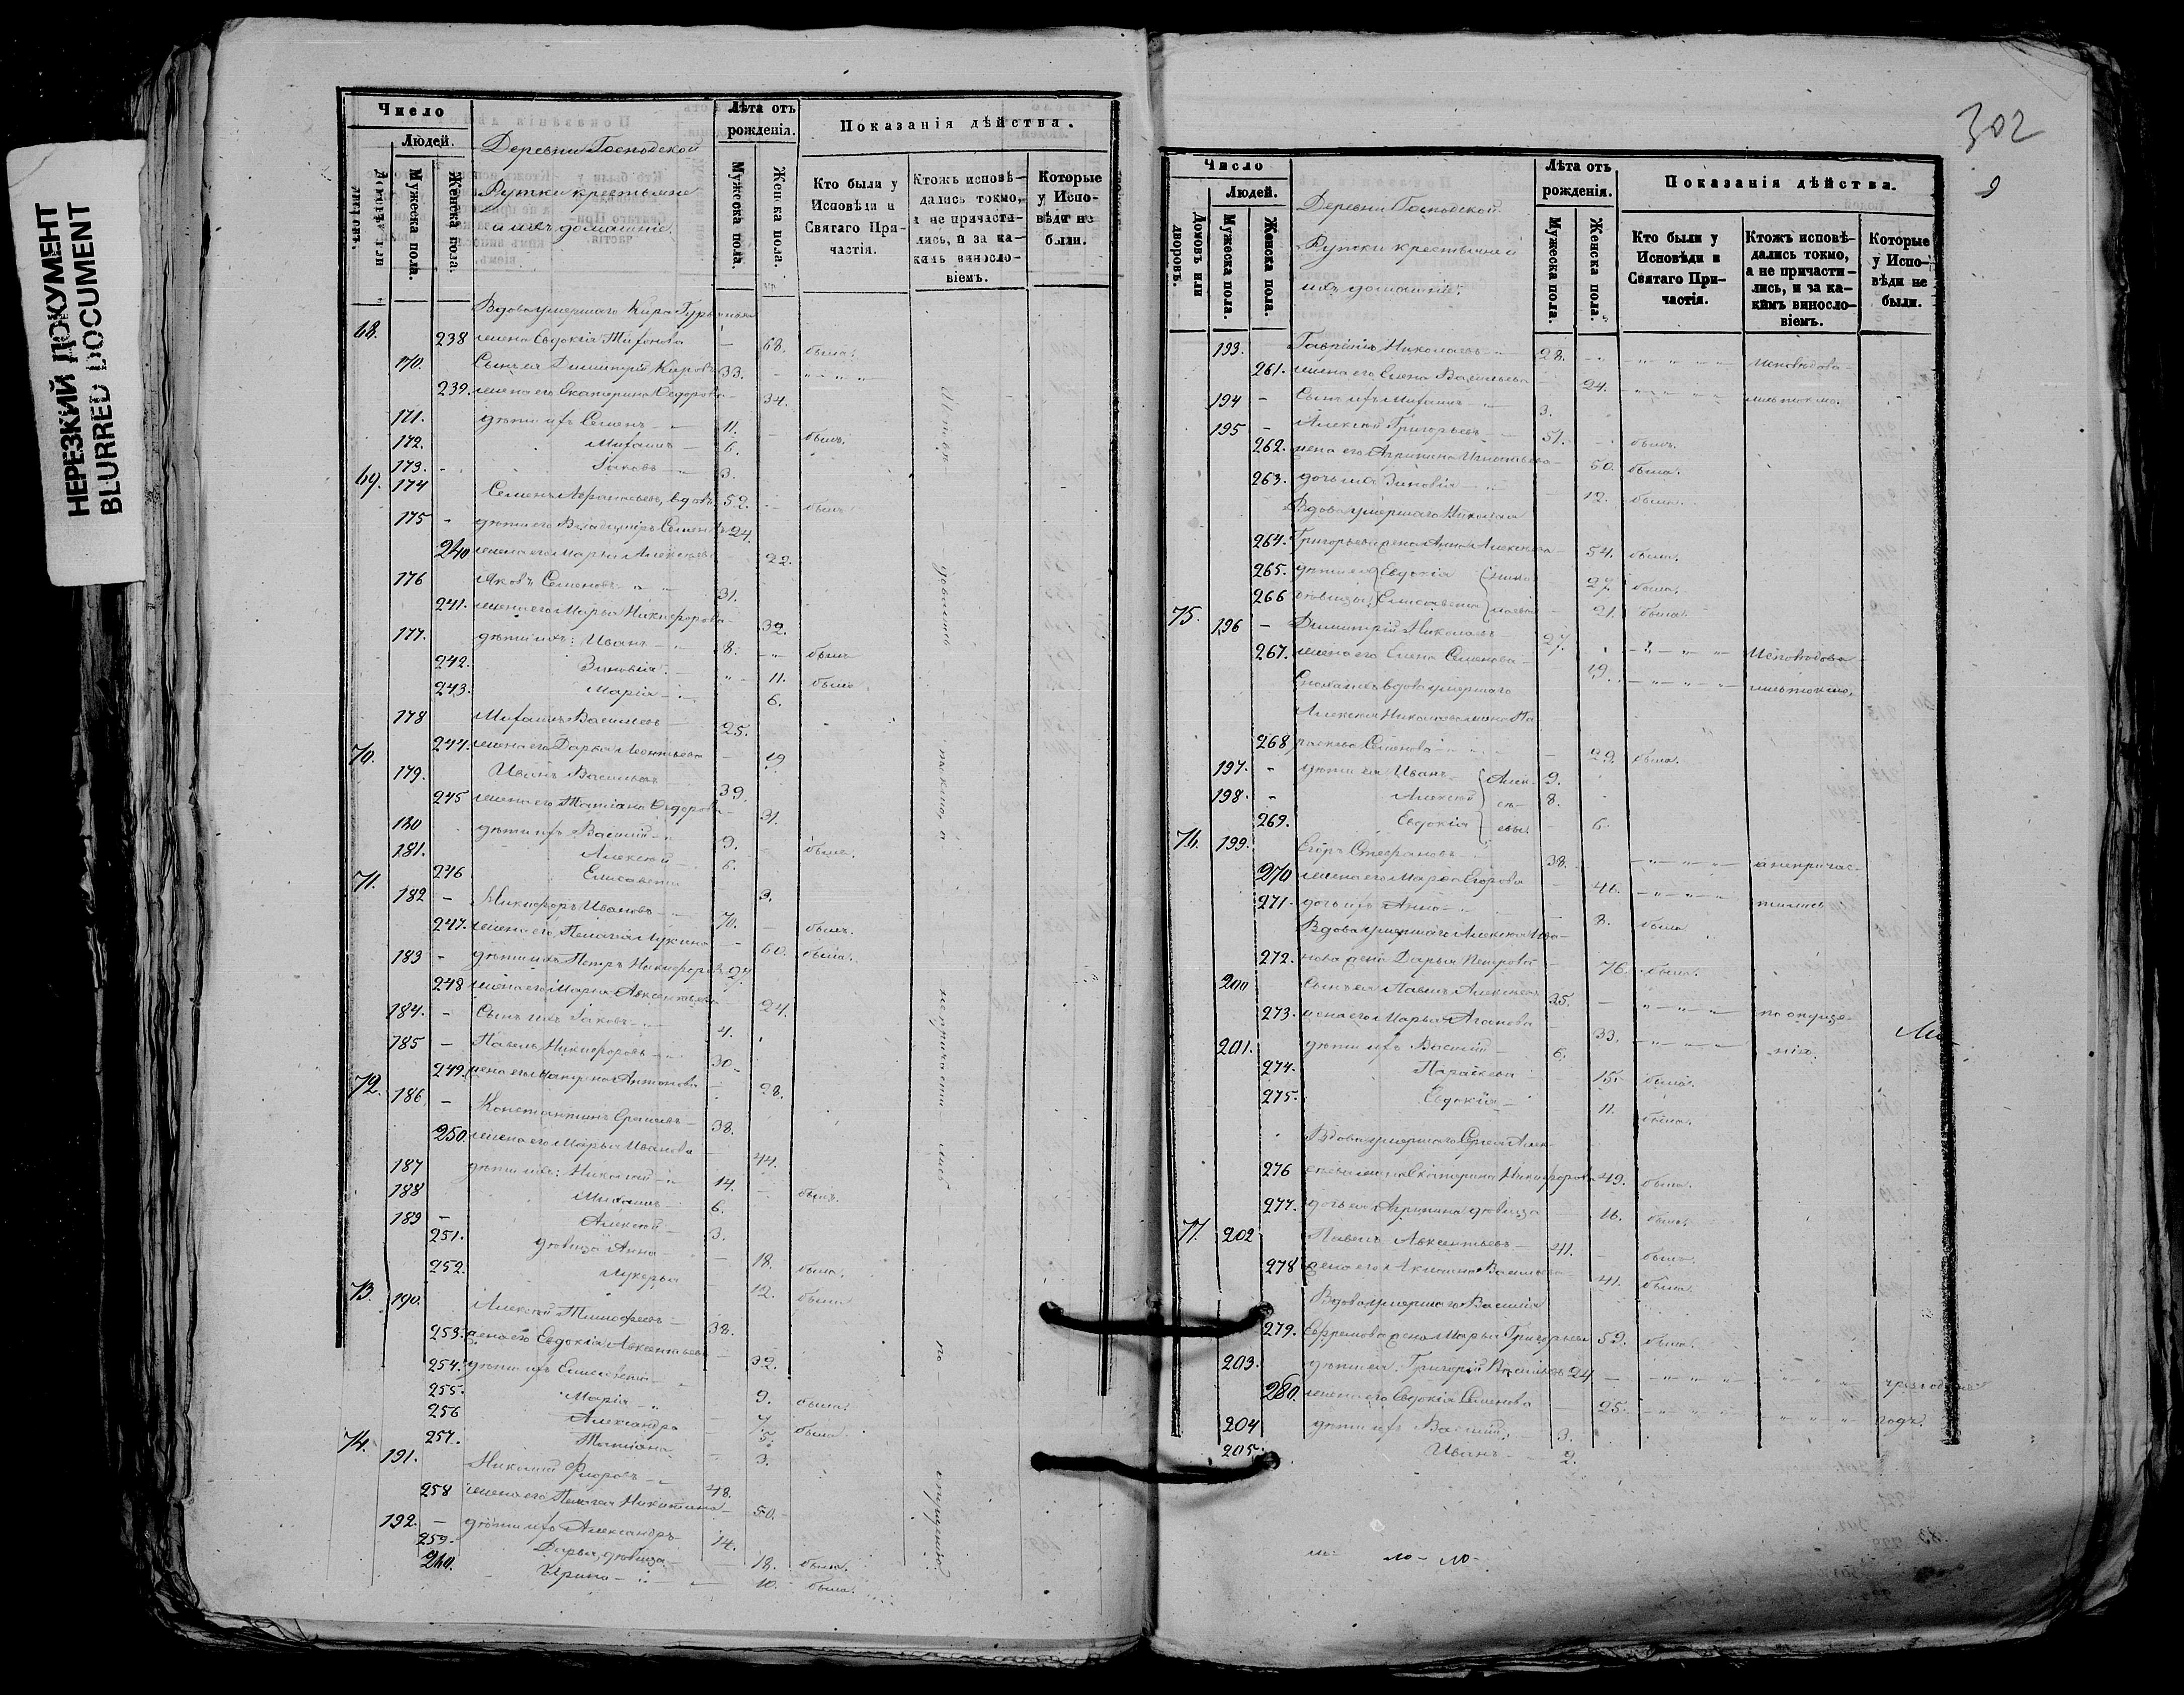 НЕРЕЗКИЙ ДОКУМЕНТ
BLURRED DOCUMENT
Число
Людей.
Домовъ или дворовъ.
Мужеска пола.
Женска пола.
Деревни Господской
Рутки крестьяне
и ихъ домашніе.
Лѣта отъ рожденія.
Мужеска пола.
Женска пола.
Показанія дѣйства.
Кто были у Исповѣди и Святаго Причастія.
Ктожъ исповѣдались токмо, а не причастились, и за какимъ винословіемъ.
Которые у Исповѣди не были.
Вдова умершаго Кира Гурьянова
68. 238 жена Евдокія 68. была.
170. Сынъ ея Димитрій Кировъ 33.
239. жена его Екатерина Ѳедорова 34.
171. дѣти ихъ Семенъ 11. былъ.
172. Михаилъ 6.
173. Іаковъ 3.
69. 174 Семенъ вдовъ 52. былъ
175 дѣти его Владиміръ Семеновъ 24.
240 жена его Марья Алексѣева 22.
176 Яковъ Семеновъ 31.
241. жена его Марья Никифорова 32.
177. дѣти ихъ: Иванъ 8. былъ
242. Зиновія 11. была
243. Марія 6.
178 Михаилъ Васильевъ 25.
244. жена его Дарья Леонтьева 19
70. 179. Иванъ Васильевъ 39.
245 жена его Татіана Ѳедорова 31.
180 дѣти ихъ Василій 9. былъ.
181. Алексѣй 6.
246 Елисавета 3.
71. 182 Никифоръ Ивановъ 70. былъ.
247. жена его Пелагія Лукина 60. была.
183 дѣти ихъ Петръ Никифоровъ 27.
248 жена его Марья Авксентьева 24.
184. Сынъ ихъ Іаковъ 4.
185 Павелъ Никифоровъ 30.
249. жена его Антонова 28.
72. 186. Константинъ 38.
250. жена его Марья Иванова 44.
187 дѣти ихъ: Николай 14. былъ.
188 Михаилъ 6.
189 Алексѣй 3.
251. дѣвица Анна 18. была.
252. Лукерья 12. была
73. 190. Алексѣй Тимофеевъ 38.
253. жена его Евдокія Авксентьева 32.
254. дѣти ихъ Елисавета 9. была.
255. Марія 7. была.
256 Александра 5.
257. Татіана 3.
74. 191. Николай Флоровъ 48.
258 жена его Пелагея Никитина 50.
192. дѣти ихъ Александръ 14.
259. Дарья, дѣвица 18. была.
260. Ирина 10. была.
Исповѣдовались токмо, а не причастились по опущенію.
302
Число
Людей.
Домовъ или дворовъ.
Мужеска пола.
Женска пола.
Деревни Господской
Рутки крестьяне и
ихъ домашніе.
Лѣта отъ рожденія.
Мужеска пола.
Женска пола.
Показанія дѣйства.
Кто были у Исповѣди и Святаго Причастія.
Ктожъ исповѣдались токмо, а не причастились, и за какимъ винословіемъ.
Которые у Исповѣди не были.
193. Гавріилъ Николаевъ 28. исповѣдова-
261. жена его Елена Васильева 24. лись токмо.
194 Сынъ ихъ Михаилъ 3.
195 Алексѣй Григорьевъ 51. былъ.
262. жена его Агрипина Игнатьева 50. была.
263. дочь ихъ Зиновія 12. была.
Вдова умершаго Николая
264. Григорьева жена Анна Алексѣева 54. была.
265. дѣти ея Евдокія Нико- 27. была.
266 дѣвицы Елисавета лаевы 21. была.
75. 196 Димитрій Николаевъ 27. Исповѣдова-
267. жена его Елена Семенова 19. лись токмо,
вдова умершаго
Алексѣя Николаева жена Па-
268 раскева Семенова 29. была.
197. дѣти ея Иванъ Алек- 9.
198. Алексѣй сѣ- 8.
269. Евдокія евы 6.
76. 199. Егоръ Стефановъ 38. а непричас-
270 жена его Марья Егорова 46. тились
271. дочь ихъ Анна 8. была
Вдова умершаго Алексѣя Ива-
272. нова жена Дарья Петрова 76. была.
200 Сынъ ея Павелъ Алексѣевъ 35. по опуще-
273. жена его Марья Агапова 33. нію.
201. дѣти ихъ Василій 6.
274. Параскева 15. была.
275. Евдокія 11. была.
Вдова умершаго Сергея Алек-
276 сѣева жена Екатерина Никифорова 49. была.
277. дочь ея Агрипина дѣвица 16. была.
77. 202 Павелъ Авксентьевъ 41. былъ.
278 жена его Акилина Васильева 41. была.
Вдова умершаго Василія
279. Ефремова жена Марья Григорьева 59. была.
203. дѣти ея Григорій Васильевъ 24
280. жена его Евдокія Семенова 25. годъ.
204 дѣти ихъ Василій 3.
205. Иванъ 2.